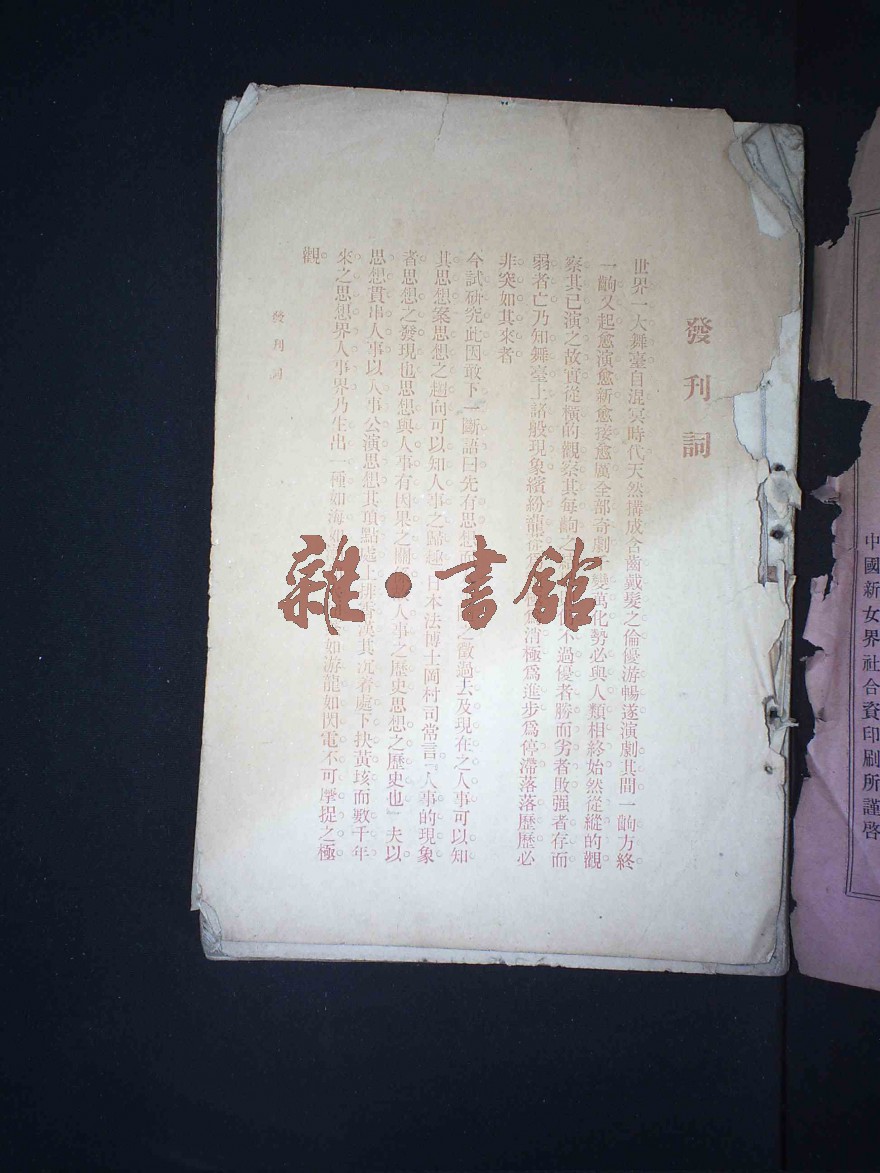 發刊詞
世界一大舞臺自混冥時代天然搆成含齒戴髮之倫優游暢遂演劇其間一齣方終
一齣又起愈演愈新愈接愈厲全部奇劇變萬化勢必與人類相終始然從縱的觀
察其已演之故實從橫的觀察其每齣之不過優者勝而劣者敗强者存而
弱者亡乃知舞臺上諸般現象繽紛龍消極爲進步爲停滯落落歷歷必
非突如其來者
今試研究此因敢下一斷語曰先有思想之徵過去及現在之人事可以知
其思想案思想之趨向可以知人事之歸趣日本法博士岡村司常言『人事的現象
者思想之發現也思想與人事有因果之關人事之歷史思想之歷史也』夫以
思想貫串人事以人事公演思想其項點處上排霄漢其沉脊處下抉黃垓而數千年
來之思想界人事界乃生出一種如海如游龍如閃電不可摩捉之極
觀
發刊詞
雜·書館
中國新女界社合資印刷所謹啓